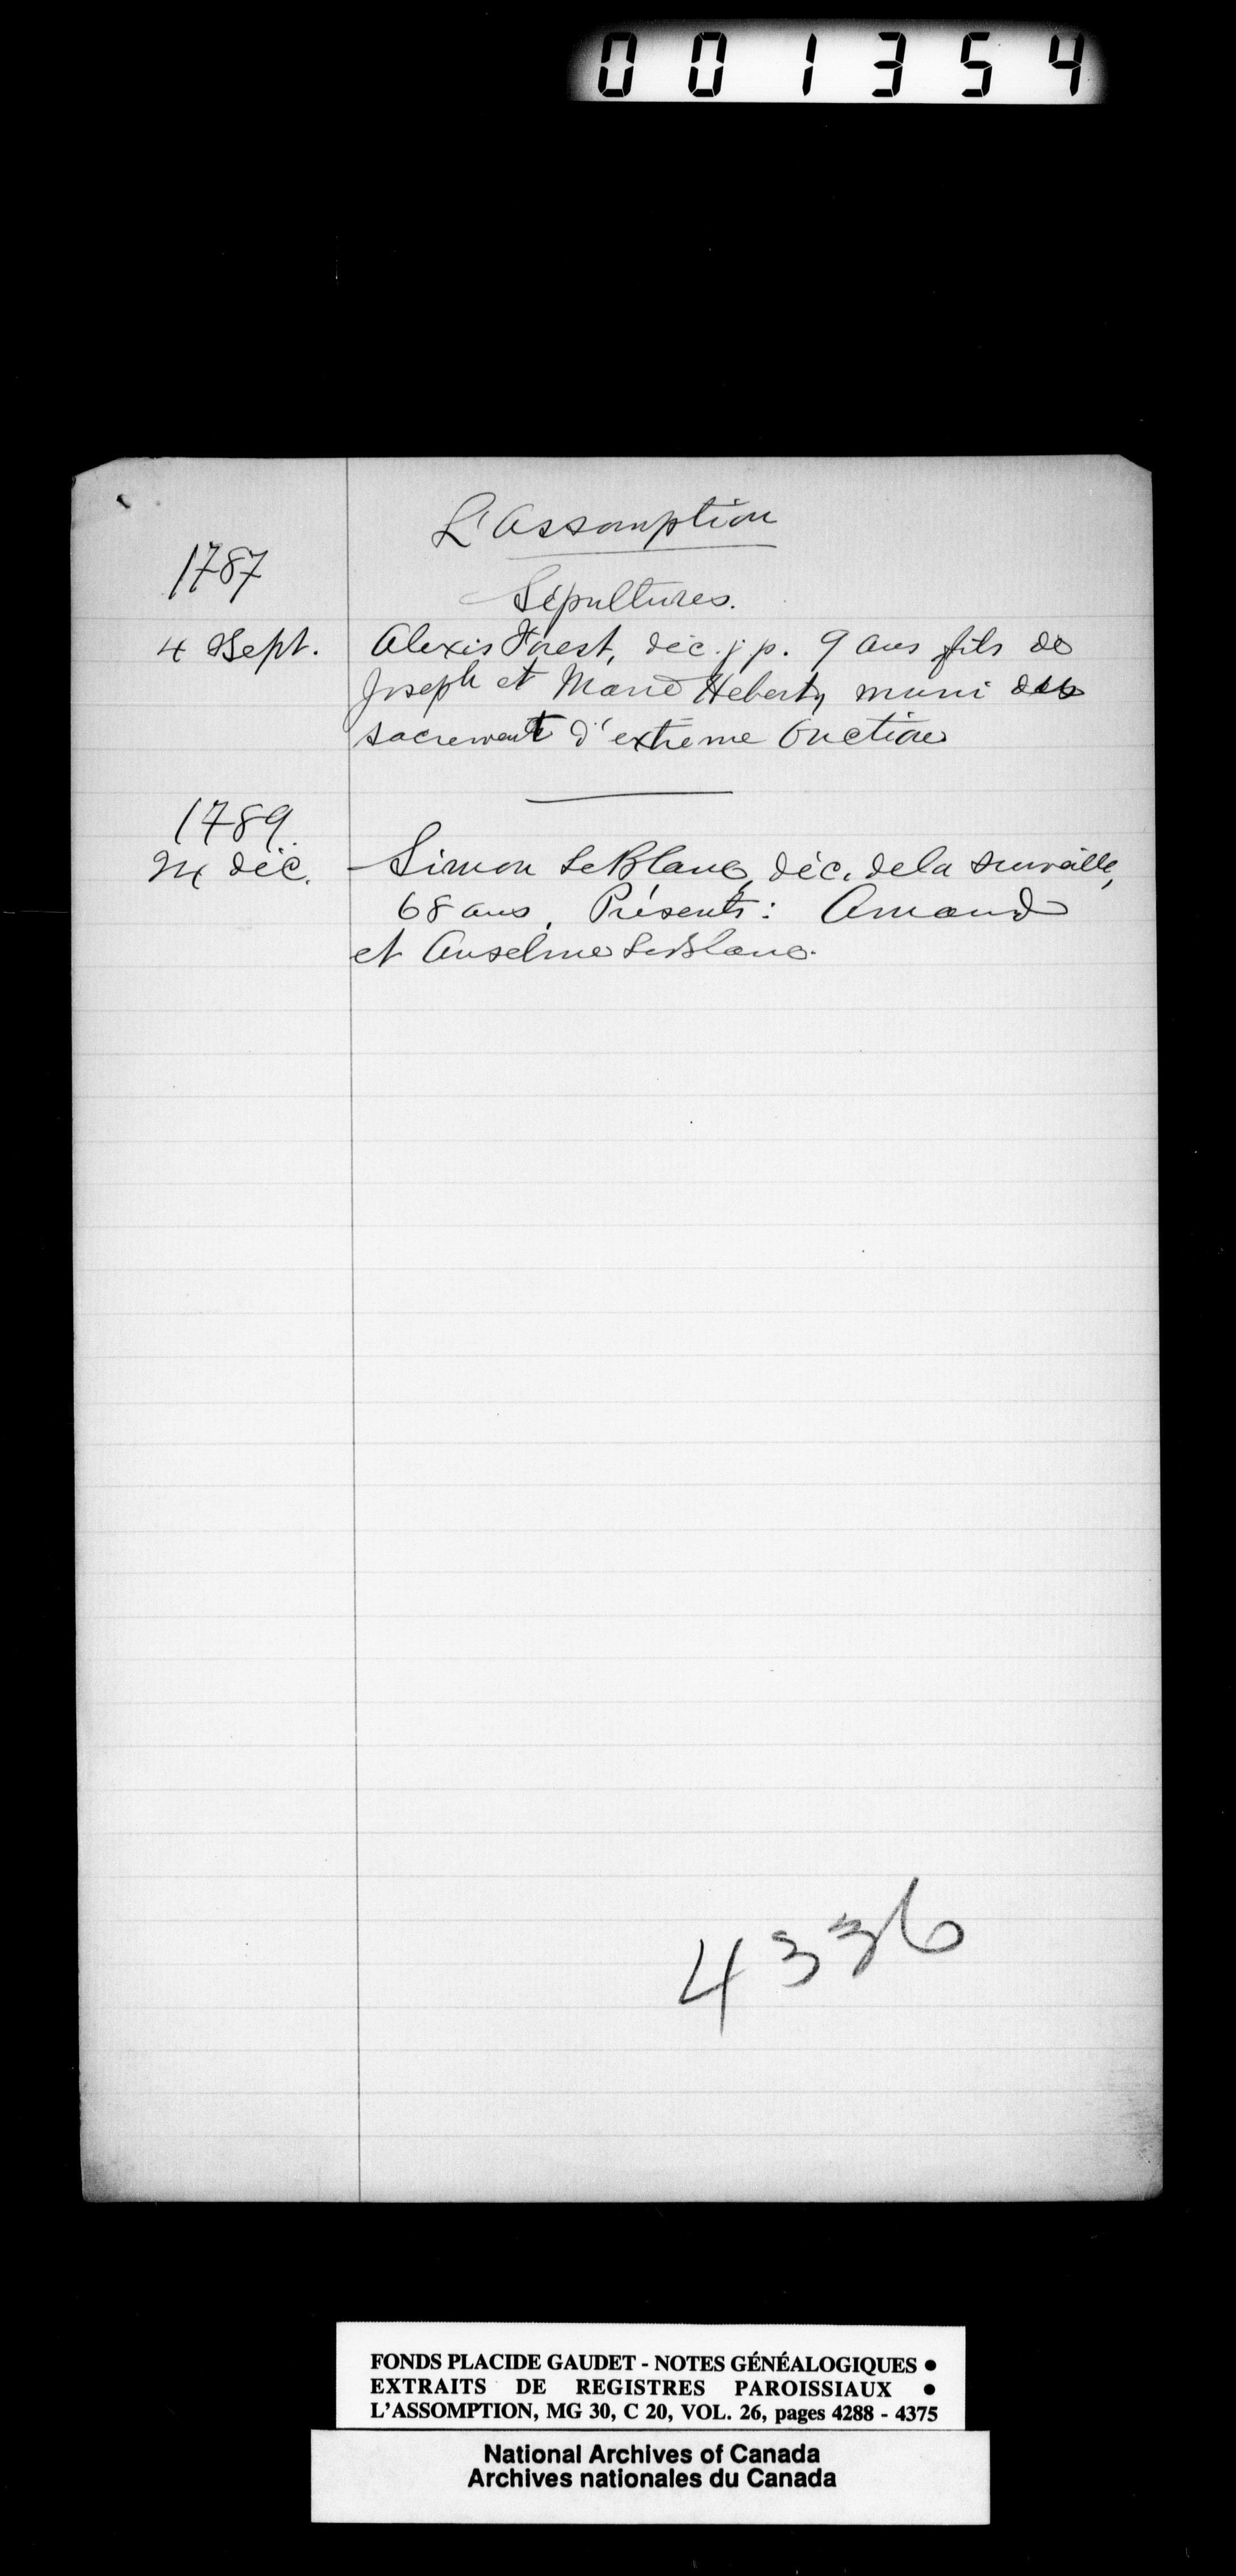 001354
L'Assomption
1787
Sépultures.
4 Sept. Alexis Forest, déc. j. p. 9 ans fils de
Joseph et Marie Hebert, muni des
sacrement d'extreme Onction
1789.
24 déc. Simon LeBlanc, déc. de la surveille,
68 ans. Présents: Amand
et Anselme LeBlanc.
4336
FONDS PLACIDE GAUDET - NOTES GÉNÉALOGIQUES •
EXTRAITS DE REGISTRES PAROISSIAUX •
L'ASSOMPTION, MG 30, C 20, VOL. 26, pages 4288 - 4375
National Archives of Canada
Archives nationales du Canada